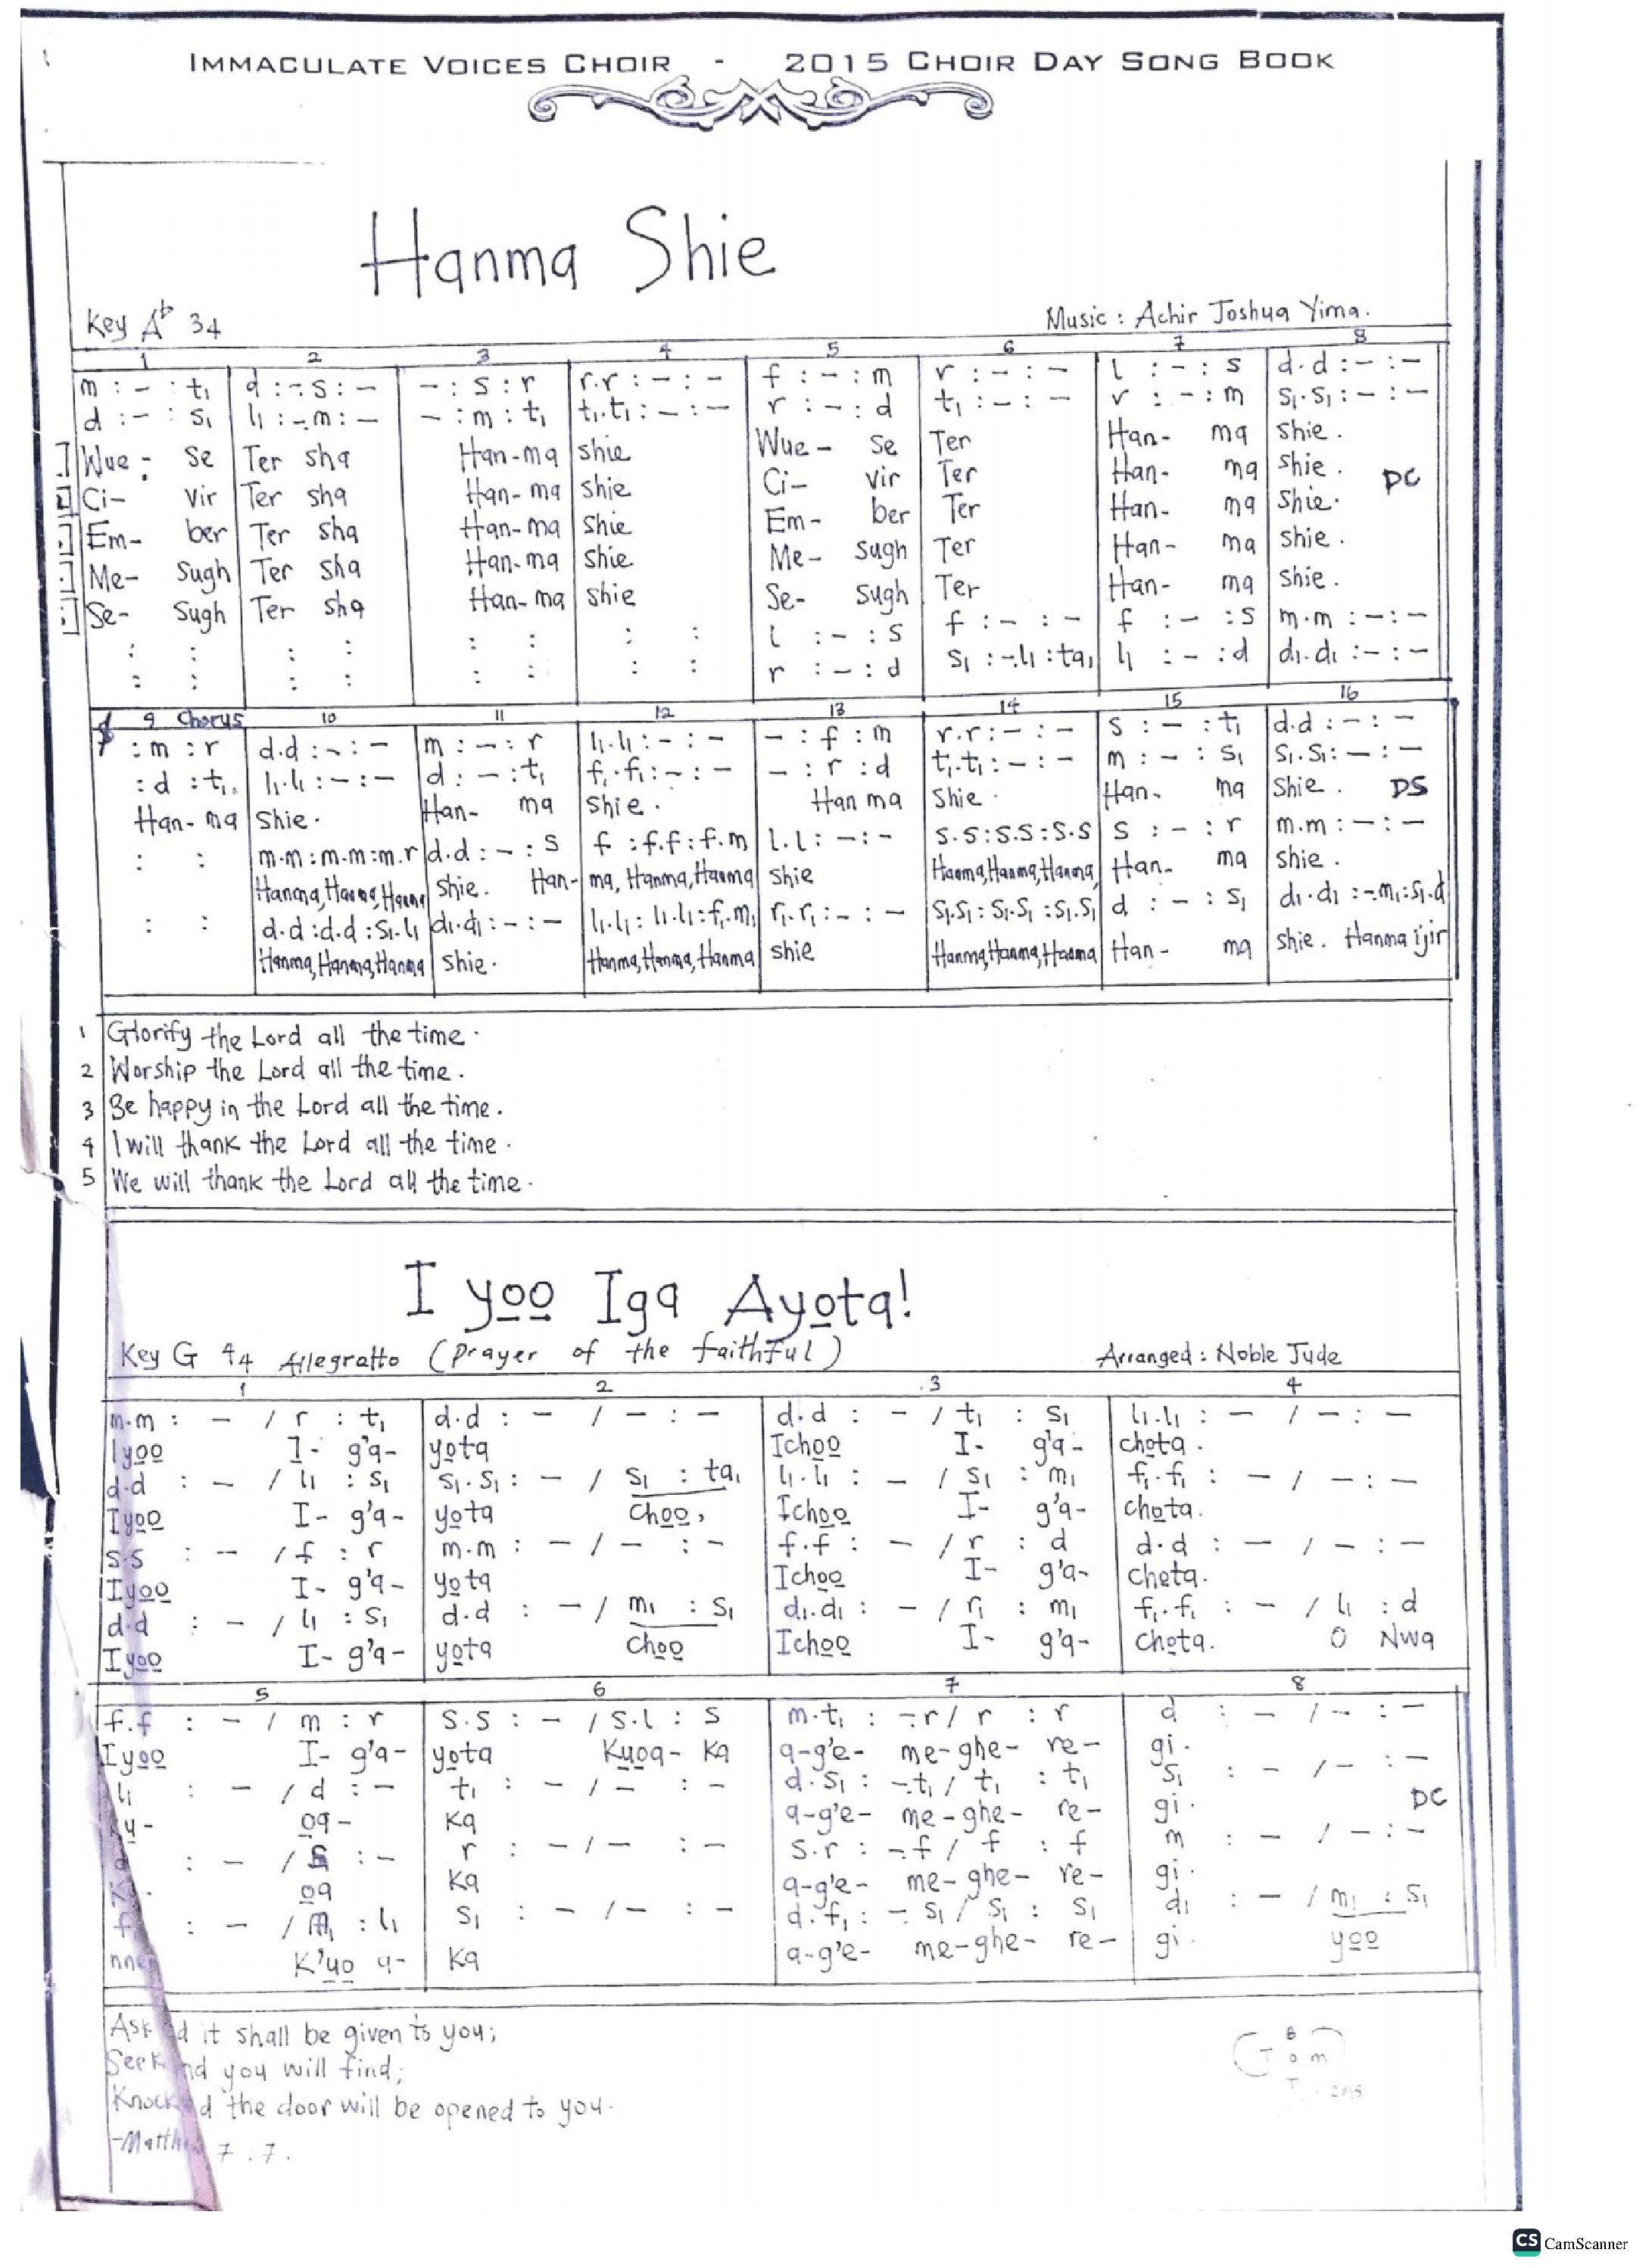 IMMACULATE VOICES CHOIR - 2015 CHOIR DAY SONG BOOK
Hanma Shie
Key A♭ 34
Music : Achir Joshua Yima.
1 2 3 4 5 6 7 8
m : – : t₁ | d : -. s : – | – : s : r | r.r : – : – | f : – : m | r : – : – | l : – : s | d.d : – : –
d : – : s₁ | l₁ : -. m : – | – : m : t₁ | t₁.t₁ : – : – | r : – : d | t₁ : – : – | r : – : m | s₁.s₁ : – : –
Wue- se | Ter sha | Han-ma | shie | Wue- se | Ter | Han- ma | shie.
Ci- vir | Ter sha | Han-ma | shie | Ci- vir | Ter | Han- ma | shie. DC
Em- ber | Ter sha | Han-ma | shie | Em- ber | Ter | Han- ma | shie.
Me- sugh | Ter sha | Han-ma | shie | Me- sugh | Ter | Han- ma | shie.
Se- sugh | Ter sha | Han-ma | shie | Se- sugh | Ter | Han- ma | shie.
: : | : : | : : | : : | l : – : s | f : – : – | f : – : s | m.m : – : –
: : | : : | : : | : : | r : – : d | s₁ : -.l₁ : ta₁ | l₁ : – : d | d₁.d₁ : – : –
9 Chorus 10 11 12 13 14 15 16
: m : r | d.d : – : – | m : – : r | l₁.l₁ : – : – | – : f : m | r.r : – : – | s : – : t₁ | d.d : – : –
: d : t₁ | l₁.l₁ : – : – | d : – : t₁ | f₁.f₁ : – : – | – : r : d | t₁.t₁ : – : – | m : – : s₁ | s₁.s₁ : – : –
Han-ma | shie. | Han- ma | shie. | Han ma | shie. | Han- ma | shie. DS
: : | m.m : m.m : m.r | d.d : – : s | f : f.f : f.m | l.l : – : – | s.s : s.s : s.s | s : – : r | m.m : – : –
Hanma, Hanma, Hanma | shie. Han- | ma, Hanma, Hanma | shie | Hanma, Hanma, Hanma, | Han- ma | shie.
: : | d.d : d.d : s₁.l₁ | d₁.d₁ : – : – | l₁.l₁ : l₁.l₁ : f₁.m₁ | r₁.r₁ : – : – | s₁.s₁ : s₁.s₁ : s₁.s₁ | d : – : s₁ | d₁.d₁ : -.m₁ : s₁.d
Hanma, Hanma, Hanma | shie. | Hanma, Hanma, Hanma | shie | Hanma, Hanma, Hanma | Han- ma | shie. Hanma ijir
1 Glorify the Lord all the time.
2 Worship the Lord all the time.
3 Be happy in the Lord all the time.
4 I will thank the Lord all the time.
5 We will thank the Lord all the time.
I yo̲o̲ Iga Ayo̲ta!
Key G 44 Allegratto (Prayer of the faithful)
Arranged : Noble Jude
1 2 3 4
m.m : – / r : t₁ | d.d : – / – : – | d.d : – / t₁ : s₁ | l₁.l₁ : – / – : –
Iyo̲o̲ I- g'a- | yo̲ta | Icho̲o̲ I- g'a- | cho̲ta.
d.d : – / l₁ : s₁ | s₁.s₁ : – / s₁ : ta₁ | l₁.l₁ : – / s₁ : m₁ | f₁.f₁ : – / – : –
Iyo̲o̲ I- g'a- | yo̲ta Cho̲o̲, | Icho̲o̲ I- g'a- | cho̲ta.
s.s : – / f : r | m.m : – / – : – | f.f : – / r : d | d.d : – / – : –
Iyo̲o̲ I- g'a- | yo̲ta | Icho̲o̲ I- g'a- | cheta.
d.d : – / l₁ : s₁ | d.d : – / m₁ : s₁ | d₁.d₁ : – / r₁ : m₁ | f₁.f₁ : – / l₁ : d
Iyo̲o̲ I- g'a- | yo̲ta Cho̲o̲ | Icho̲o̲ I- g'a- | cho̲ta. O Nwa
5 6 7 8
f.f : – / m : r | s.s : – / s.l : s | m.t₁ : -.r / r : r | d : – / – : –
Iyo̲o̲ I- g'a- | yo̲ta Ku̲o̲a- Ka | a-g'e- me-ghe- re- | gi.
l₁ : – / d : – | t₁ : – / – : – | d.s₁ : -.t₁ / t₁ : t₁ | s₁ : – / – : –
o̲a- | Ka | a-g'e- me-ghe- re- | gi. DC
: – / : – | r : – / – : – | s.r : -.f / f : f | m : – / – : –
o̲a | Ka | a-g'e- me-ghe- re- | gi.
f : – / m₁ : l₁ | s₁ : – / – : – | d.f₁ : -.s₁ / s₁ : s₁ | d₁ : – / m₁ : s₁
K'u̲o̲ a- | Ka | a-g'e- me-ghe- re- | gi. yo̲o̲
Ask it shall be given to you;
Seek and you will find;
Knock the door will be opened to you.
7.7.
B
T o m
T 2015
CS CamScanner